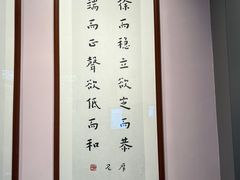 徐而穩立欲定而恭
端而正聲欲低而和